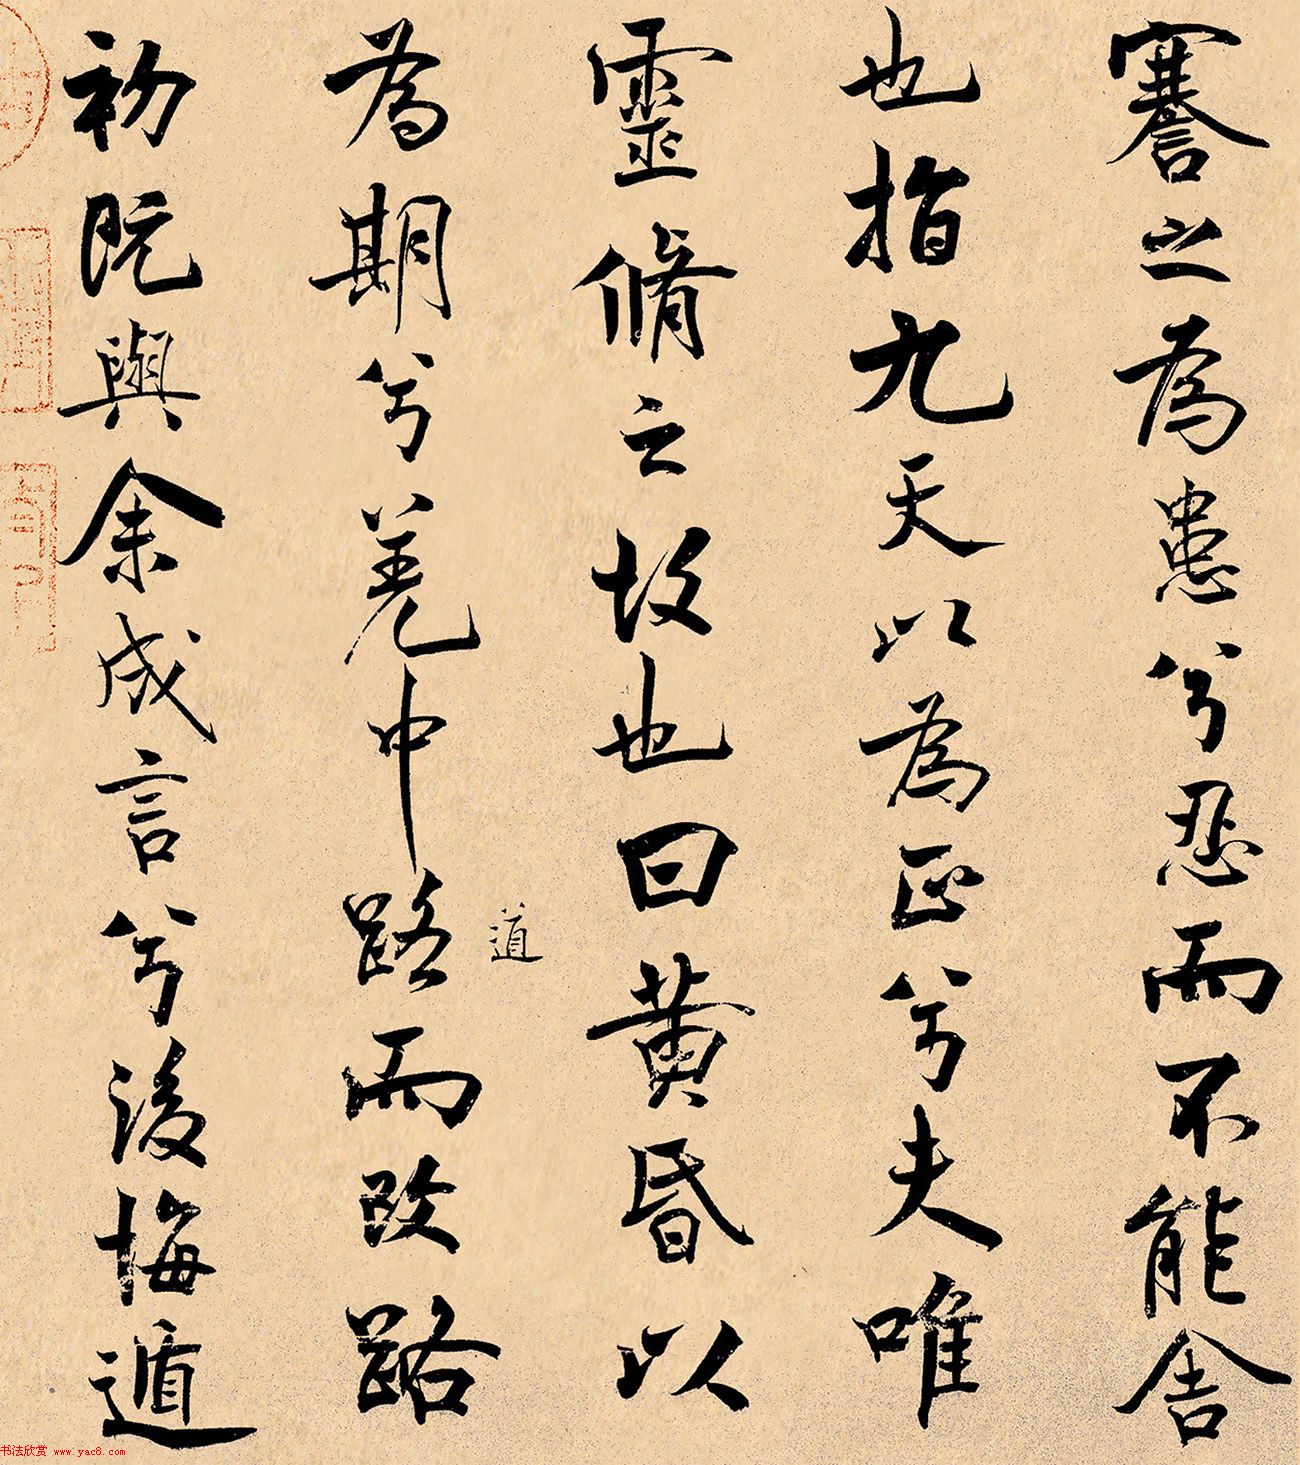 謇之為患兮忍而不能舍
也指九天以為正兮夫唯
靈脩之故也曰黃昏以
為期兮羌中路而改路
道
初既與余成言兮後悔遁
书法欣赏 www.yac8.com